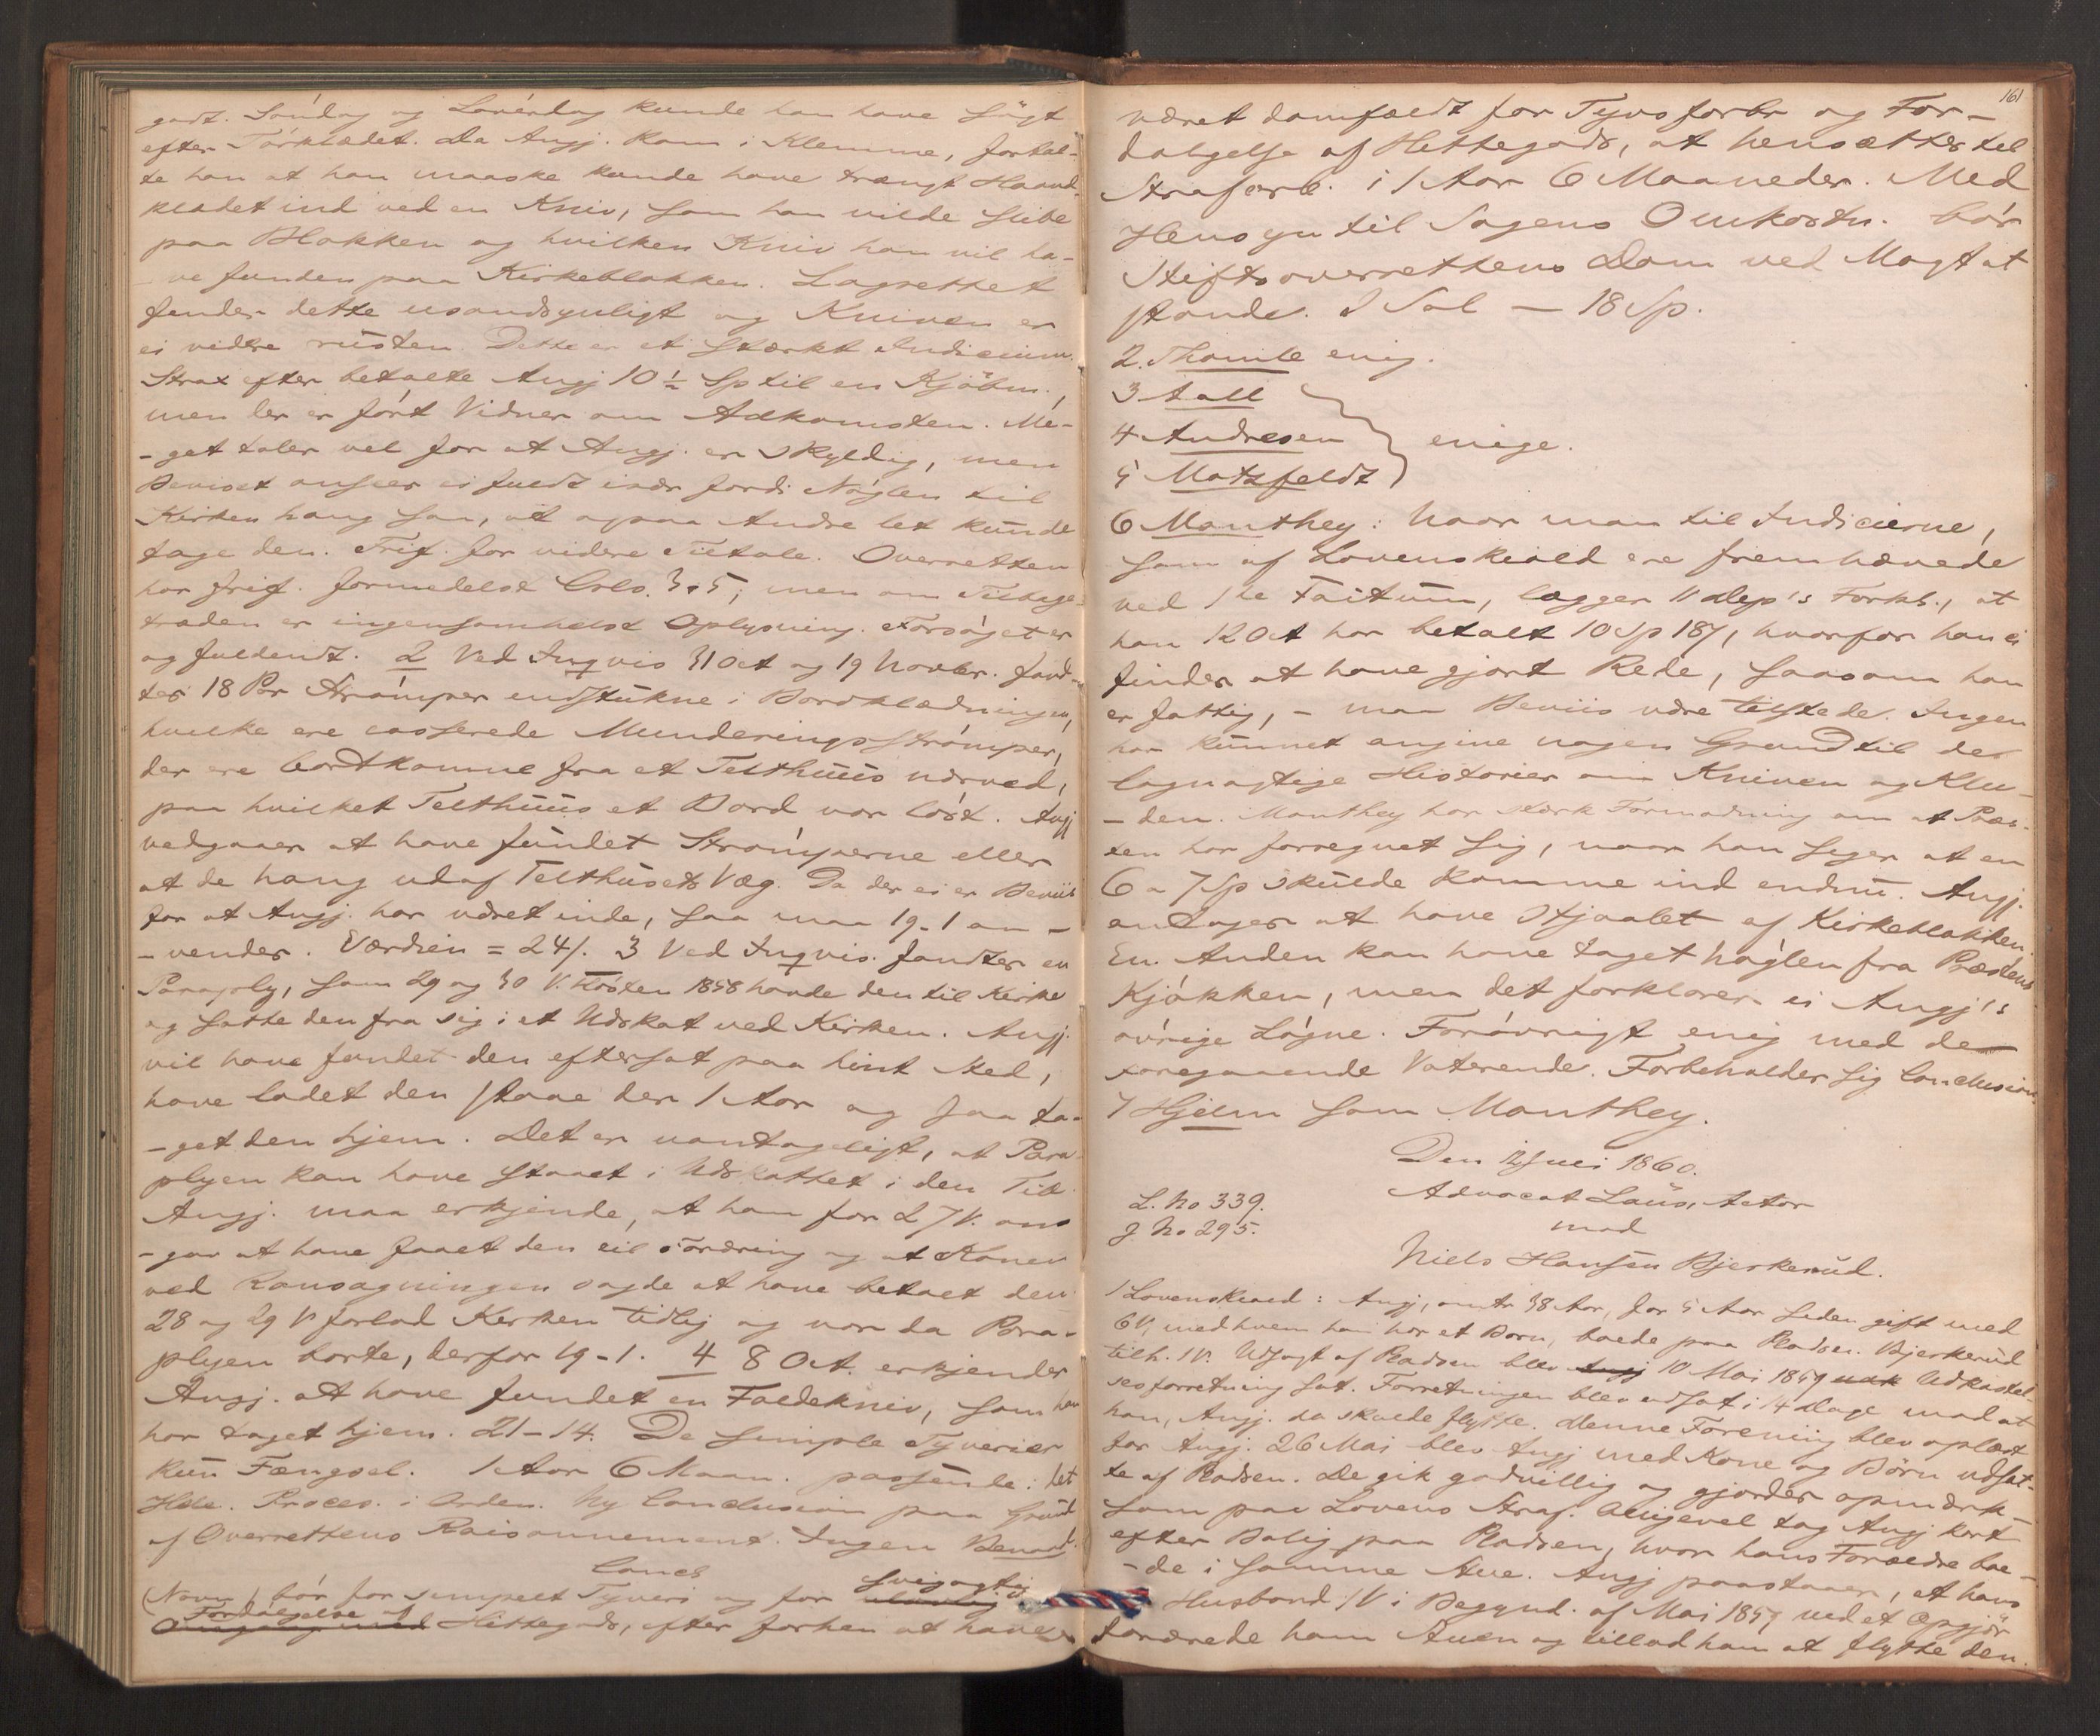 godt. Søndag og Løverdag kunde han have søgt
efter Tørklædet. Da Angj. kom i Klemme, fortal-
te han at han maaske kunde have trængt Haand-
klædet ind ved en Kniv, som han vilde slibe
paa Blokken og hvilken Kniv han vil ha-
ve funden paa Kirkeblokken. Lagrettet
finder dette usandsynligt og Kniven er
ei videre rusten. Dette er et stærkt Indicium.
Strax efter betalte Angj 10½ Sp til en Kjøbm.,
men der er ført Vidner om Adkomsten. Me-
-get taler vel for at Angj. er skyldig, men
Beviset ansees ei fuldt især fordi Nøglen til
Kirken hang saa, at ogsaa Andre let kunde
tage den. Frif. for videre Tiltale. Overretten
har frif. formedelst Crls. 3.5; men om Tilbage-
træden er ingensomhelst Oplysning. Forsøget er
og fuldendt. 2 Ved Inqvis 31 Oct og 19 Novbr. fand-
tes 18 Par Strømper indstukne i Bordklædningen,
hvilke ere casserede Munderingsstrømper,
der ere bortkomne fra et Telthuus nærved,
paa hvilket Telthuus et Bord var løst. Angj
vedgaaer at have fundet Strømperne eller
at de hang ud af Telthusets Væg. Da der ei er Beviis
for at Angj. har været inde, saa maa 19-1 an-
-vendes. Værdien = 24/. 3 Ved Inqvis. fandtes en
Paraply, som 29 og 30 V. Høsten 1858 havde den til Kirke
og satte den fra sig i et Udskot ved Kirken. Angj.
vil have fundet den eftersat paa hint Sted,
have ladet den staae der 1 Aar og saa ta-
-get den hjem. Det er uantageligt, at Para-
plyen kan have staaet i Udskottet i den Tid.
Angj. maa erkjende, at han for 27 V. an-
-gav at have faaet den til Foræring og at Konen
ved Ransagningen sagde at have betalt den.
28 og 29 V forlod Kirken tidlig og var da Para-
plyen borte, derfor 19-1. 4 8 Oct. erkjender
Angj. at have fundet en Foldekniv, som han
har taget hjem. 21-14. De simple Tyverier
kun Fængsel. 1 Aar 6 Maan. passende: let
Hde. Proces. i Orden. Ny Conclusion paa Grund
af Overrettens Raisonnement. Ingen Benaad.
Concl
(Navn) bør for simpelt Tyveri og for svigagtig
Fordølgelse af Hittegods, efter forhen at have
161
været domfældt for Tyvsforbr og For-
dølgelse af Hittegods, at hensættes til
Strafarb. i 1 Aar 6 Maaneder. Med
Hensyn til Sagens Omkostn. bør
Stiftsoverrettens Dom ved Magt at
stande. I Sal — 18 Sp.
2. Thomle enig.
3 Aall
4 Andresen enige.
5 Motzfeldt
6 Manthey: Naar man til Indicierne,
som af Løvenskiold ere fremhævede
ved 1te Factum, lægger 11 Dep's Forkl., at
han 12 Oct har betalt 10 Sp 18/, hvorfor han ei
finder at have gjort Rede, saasom han
er fattig, - maa Beviis være tilstede. Ingen
har kunnet angive nogen Grund til de
løgnagtige Historier om Kniven og Klu-
-den. Manthey har stærk Formodning om at Præs-
ten har forregnet sig, naar han siger at en
6 a 7 Sp skulde komme ind endnu. Angj.
antages at have stjaalet af Kirkeblokken.
En Anden kan have taget Nøglen fra Præstens
Kjøkken, men det forklarer ei Angj's
øvrige Løgne. Forøvrigt enig med de
foregaaende Voterende. Forbeholder sig Conclusion.
7 Hjelm som Manthey.
Den 12 Juni 1860.
L. No 339. Advocat Laüs, Actor
J No 295. mod
Niels Hansen Bjerkerud.
1 Løvenskiold: Angj, omtr 38 Aar, for 5 Aar siden gift med
6 V, med hvem han har et Barn, boede paa Pladsen Bjerkerud
tilh. 1 V. Udsagt af Pladsen blev Angj 10 Mai 1859 Udkastel-
sesforretning sat. Forretningen blev udsat i 14 Dage mod at
han, Angj. da skulde flytte. Denne Forening blev oplæst
for Angj. 26 Mai blev Angj med Kone og Børn udsat-
te af Pladsen. De gik godvillig og gjordes opmærk-
som paa Lovens Straf. Alligevel tog Angj kort
efter Bolig paa Pladsen, hvor hans Forældre bo-
-de i samme Stue. Angj paastaaer, at hans
Husbond 1 V i Begynd. af Mai 1859 ved et Opgjør
forærede ham Stuen og tillod ham at flytte den.